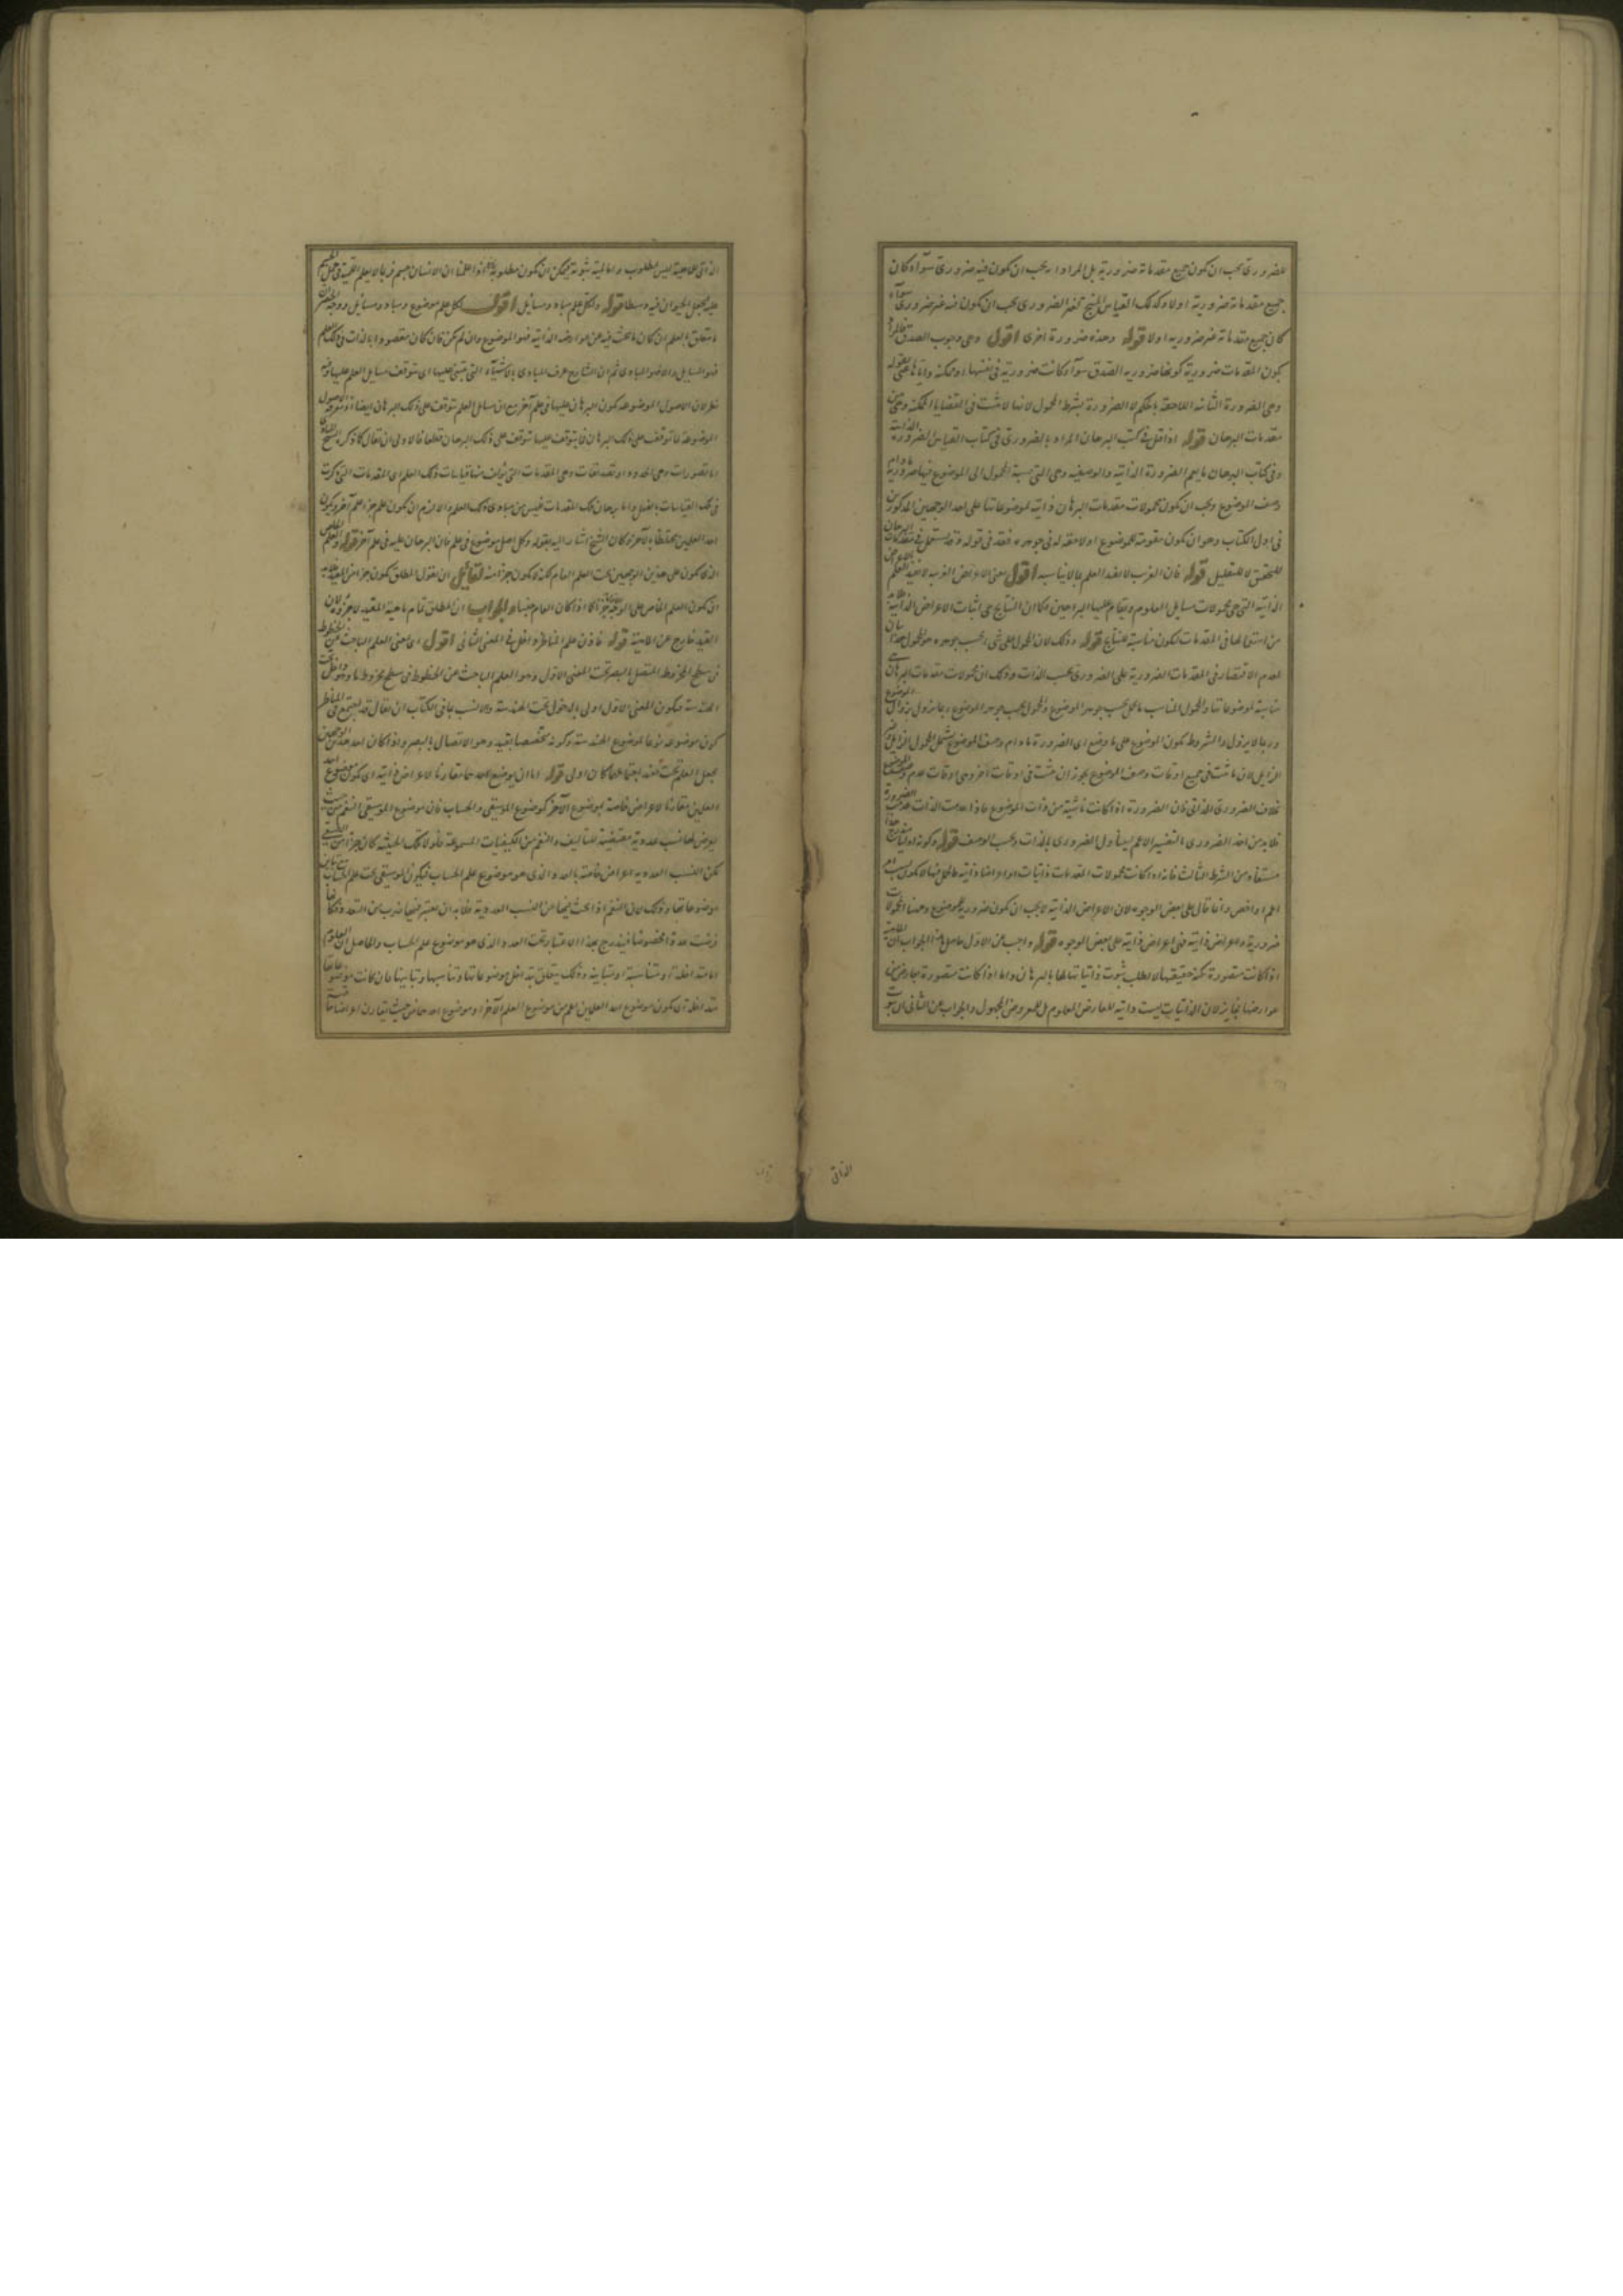 للضروري يجب ان يكون جميع مقدماته ضرورية بل المراد انه يجب ان يكون فيه ضروري سواء كان
جميع مقدماته ضرورية اولا وكذلك القياس المنتج لغير الضروري يجب ان يكون فيه غير ضروري سواء
كان جميع مقدماته غير ضرورية اولا قوله وهذه ضرورة اخرى اقول وهي وجوب الصدق
كون المقدمات ضرورية كونها ضرورية الصدق سواء كانت ضرورية في نفسها او ممكنة واياها عنى بقوله
وهي الضرورة الثانية اللاحقة بالحكم لا الضرورة بشرط المحمول لانها لا تثبت في القضايا الممكنة وهي من
مقدمات البرهان قوله اذا قيل في كتب البرهان المراد بالضروري في كتاب القياس الضرورة الذاتية
وفي كتاب البرهان ما يعم الضرورة الذاتية والوصفية وهي التي نسبة المحمول الى الموضوع فيها ضرورية ما دام
وصف الموضوع ويجب ان يكون محمولات مقدمات البرهان ذاتية لموضوعاتها على احد الوجهين المذكورين
في اول الكتاب وهو ان يكون مقومة للموضوع او لاحقة له في جوهره فقد في قوله وقد يستعمل في مقدمات البرهان
للتحقيق لا للتقليل قوله فان الغريب لا يفيد العلم بما لا يناسبه اقول يعني الاعراض الغريبة لا يفيد العلم
الذاتية التي هي محمولات مسايل العلوم ويقام عليها البراهين كما ان النتايج هي اثبات الاعراض الذاتية
من استعمالها في المقدمات ليكون مناسبة للنتايج قوله وذلك لان المحمول على شيء بحسب جوهره هو المحمول
لعدم الاقتصار في المقدمات الضرورية على الضروري بحسب الذات وذلك ان محمولات مقدمات البرهان
مناسبة لموضوعاتها والمحمول المناسب ما يحمل بحسب جوهر الموضوع والمحمول بحسب جوهر الموضوع ربما يزول بزوال الموضوع
وربما لا يزول والشروط بكون الموضوع على ما وضع اي الضرورة ما دام وصف الموضوع يشمل المحمول الزايل وغير
الزايل لان ما ثبت في جميع اوقات وصف الموضوع يجوز ان يثبت في اوقات اخر وهي اوقات عدم وصف الموضوع
بخلاف الضروري الذاتي فان الضرورة اذا كانت ناشية من ذات الموضوع فاذا عدمت الذات عدمت الضرورة
فلا بد من اخذ الضروري بالتفسير الاعم ليتناول الضروري بالذات وبحسب الوصف قوله وكونه اوليا
مستفاد من الشرط الثالث فانه اذا كانت محمولات المقدمات ذاتيات او اعراضا ذاتية فالحمل فيها لا يكون بسبب امر
اعم او اخص وانما قال على بعض الوجوه لان الاعراض الذاتية لا يجب ان يكون ضرورية للموضوع وههنا المحمولات
ضرورية والاعراض ذاتية فهي اعراض ذاتية على بعض الوجوه قوله واجيب عن الاول حاصل هذا الجواب ان الماهية
اذا كانت متصورة بكنه حقيقتها لا يطلب ثبوت ذاتياتها لها بالبرهان واما اذا كانت متصورة بعارض من
عوارضها فجايز لان الذاتيات ليست ذاتية للعارض المعلوم بل للمعروض المجهول والجواب عن الثاني ان ثبوت
الذاتي
الذاتي للماهية ليس المطلوب واما لمية ثبوته فيمكن ان يكون مطلوبة اذا علمنا ان الانسان جسم فربما لا يعلم لمية حمل الجسم
عليه فيجعل الحيوان فيه وسطا قوله ولكل علم مباد ومسائل اقول لكل علم موضوع ومباد ومسايل ووجه الحصر ان
ما يتعلق بالعلم ان كان ما يبحث فيه عن عوارضه الذاتية فهو الموضوع وان لم يكن فان كان مقصودا بالذات في ذلك العلم
فهو المسايل والا فهو المبادي ثم ان الشارح عرف المبادي بالاشياء التي تبتني عليها اي يتوقف مسايل العلم عليها وفيه
نظر لان الاصول الموضوعة يكون البرهان عليها في علم آخر مع ان مسايل العلم يتوقف على ذلك البرهان ايضا
الموضوعة لما توقف على ذلك البرهان فما يتوقف عليها يتوقف على ذلك البرهان قطعا فالاولى ان يقال كما ذكره الشيخ المبادي
اما تصورات وهي الحدود او تصديقات وهي المقدمات التي يؤلف منها قياسات ذلك العلم اي المقدمات التي ذكرت
في تلك القياسات بالفعل واما برهان تلك المقدمات فليس من مبادي ذلك العلم والا لزم ان يكون علم جزء علم آخر ويكون
احد العلمين مختلطا بالآخر وكان الشيخ اشار اليه بقوله وكل اصل موضوع في علم فان البرهان عليه في علم آخر قوله والعلم الخاص
الذي يكون على هذين الوجهين تحت العلم العام لكنه لا يكون جزءا منه لقائل ان يقول المطلق يكون جزءا من المقيد
ان يكون العلم الخاص على الوجه جزءا كما اذا كان العام جنسا والجواب ان المطلق تمام ماهية المقيد لا جزؤه لان
القيد خارج عن الماهية قوله فاذن علم المناظر داخل في المعنى الثاني اقول اي معنى العلم الباحث عن الخطوط
في سطح المخروط المتصل بالبصر تحت المعنى الاول وهو العلم الباحث عن الخطوط في سطح مخروط ما وهو داخل تحت
الهندسة فيكون المعنى الاول اولى بالدخول تحت الهندسة والانسب بما في الكتاب ان يقال قد يجتمع في المناظر
كون موضوعه نوعا لموضوع الهندسة وكونه مخصصا بقيد وهو الاتصال بالبصر واذا كان احد هذين الوجهين
يجعل العلم تحت فعند اجتماعهما كان اولى قوله اما ان يوضع احدهما مقارنا لاعراض ذاتية اي يكون موضوع احد
العلمين مقارنا لاعراض خاصة بموضوع الآخر كموضوع الموسيقي والحساب فان موضوع الموسيقي النغم من حيث
يعرض لها نسب عددية مقتضية للتأليف والنغم من الكيفيات المسموعة فلولا تلك الحيثية كان جزءا من الطبيعي
لكن النسب العددية اعراض خاصة بالعدد الذي هو موضوع علم الحساب فيكون الموسيقي تحت علم الحساب مع تباين
موضوعاتها وذلك لان النغم اذا بحث فيها عن النسب العددية فلا بد ان يعتبر فيها ضرب من التعدد فكانها
فرضت عددا مخصوصا فيندرج بهذا الاعتبار تحت العدد الذي هو موضوع علم الحساب والحاصل ان العلوم
اما متداخلة او متناسبة او متباينة وذلك يتعلق بتداخل موضوعاتها وتناسبها وتباينها فان كانت موضوعاتها
متداخلة اي يكون موضوع احد العلمين اعم من موضوع العلم الآخر او موضوع احدهما من حيث يقارن اعراضا خاصة